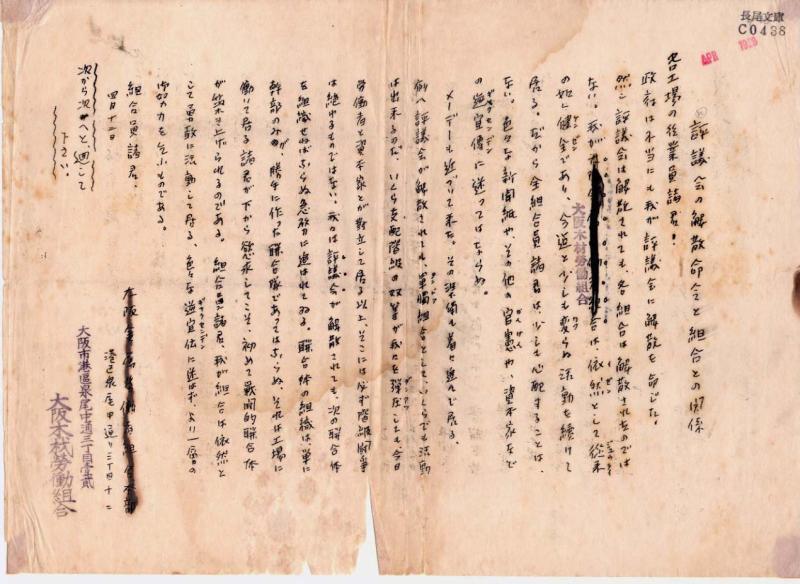 長尾文庫
C0436
APR 1929
評議会の解散命令と組合との関係
各工場の従業員諸君!
政府は不当にも我が評議会に解散を命じた。
然し評議会は解散されても、各組合は解散されたのでは
ない。我が 組合は、依然として従来
の如く健全であり、今迄と少しも変らぬ活動を続けて
居る。だから全組合員諸君は、少しも心配することは
ない。色々な新聞紙や、その他の官憲や、資本家など
の逆宣伝に迷つてはならぬ。
メーデーも近づいて来た。その準備も着々進んで居る。
例へ評議会が解散されても、単独組合として、いくらでも活動
は出来るのだ。いくら支配階級の奴等が我々を弾圧しても、今日
労働者と資本家とが対立して居る以上、そこには必ず階級闘争
は絶えるものではない。我々は評議会が解散されても、次の聯合体
を組織せねばならぬ急務に迫られてゐる。聯合体の組織は、単に
幹部のみが、勝手に作つた聯合体であつてはならぬ、それは工場に
働いて居る諸君が下から要求してこそ、初めて戦闘的聯合体
が築き上げられるのである。組合員諸君、我が組合は依然と
して勇敢に活動して居る、色々な逆宣伝に迷はず、より一層の
努力を乞ふものである。
組合員諸君、
四月十二日
次から次へと廻して
下さい
大阪木材労働組合
港区泉尾中通り三丁目十二
大阪市港區泉尾中通三丁目壹貳
大阪木材勞働組合